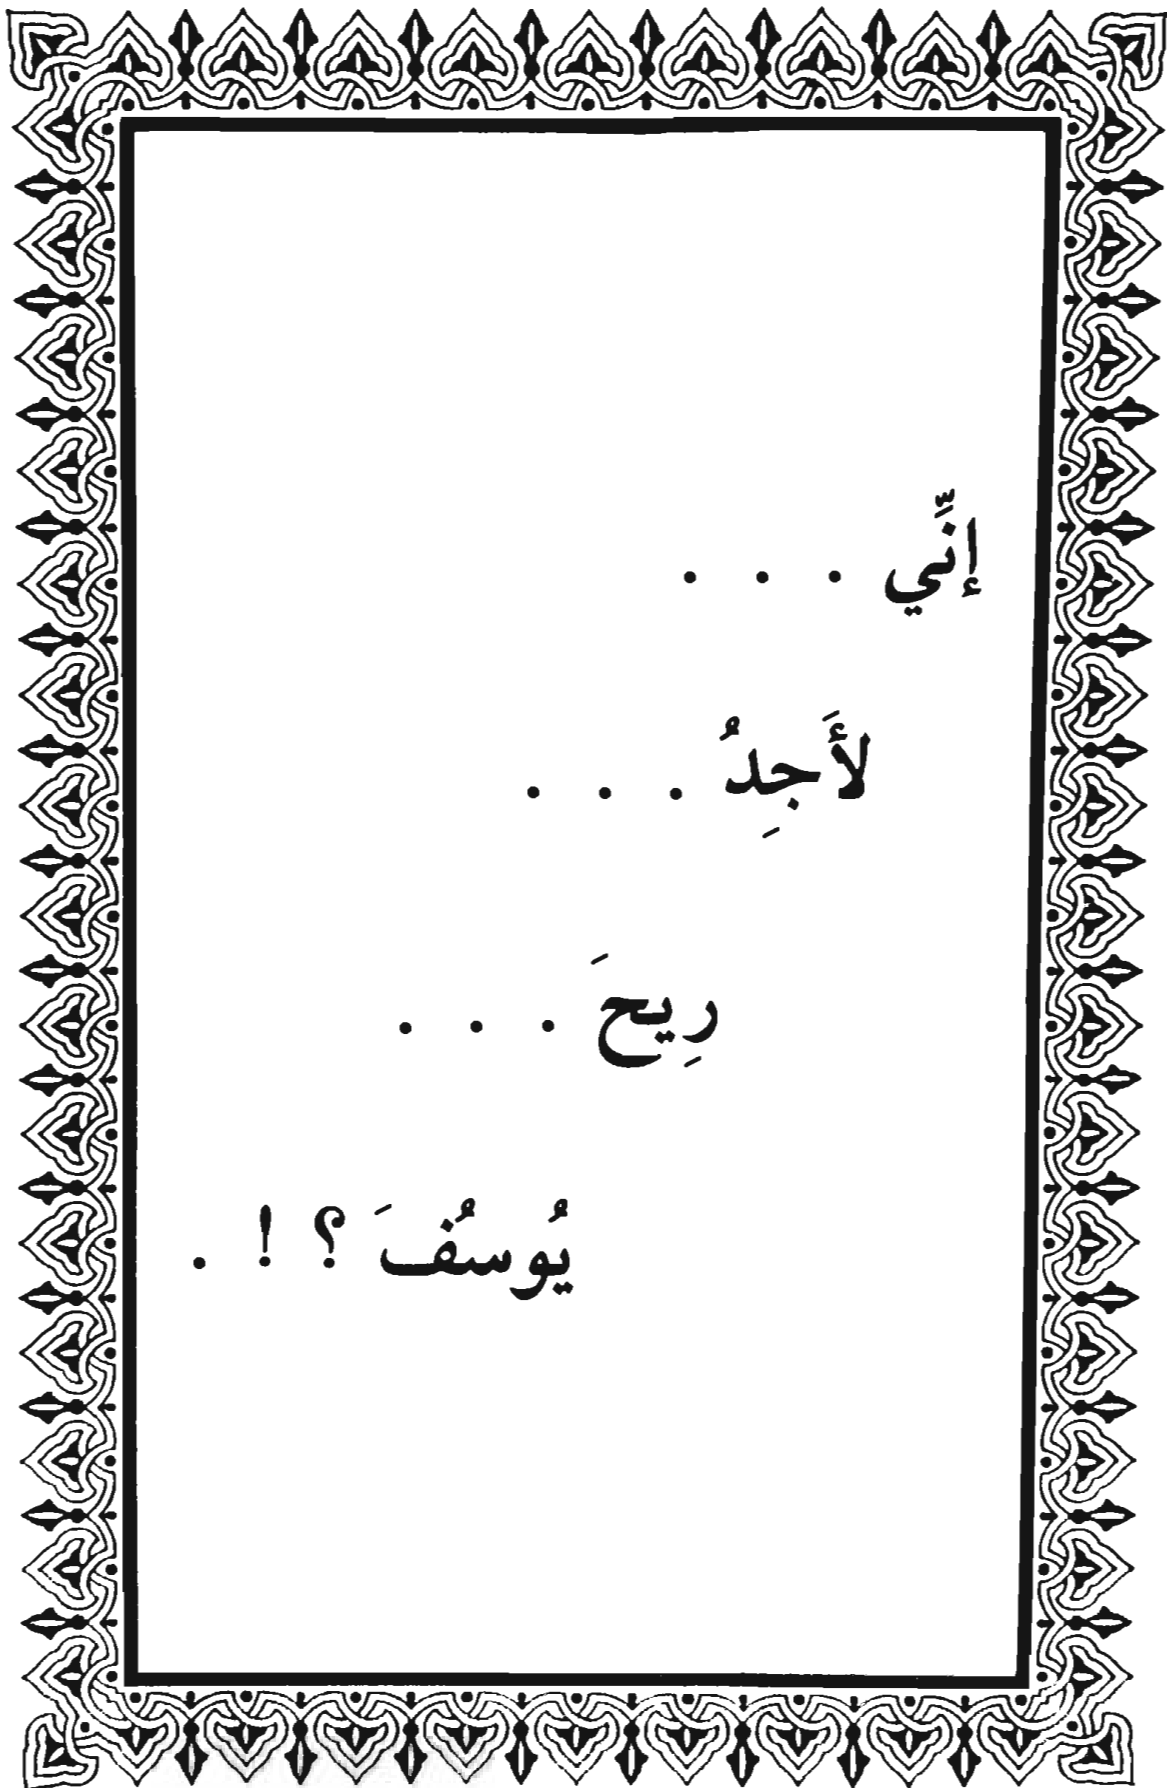 إنِّي . . .
لأَجِدُ . . .
رِيحَ . . .
يُوسُفَ ؟ ! .